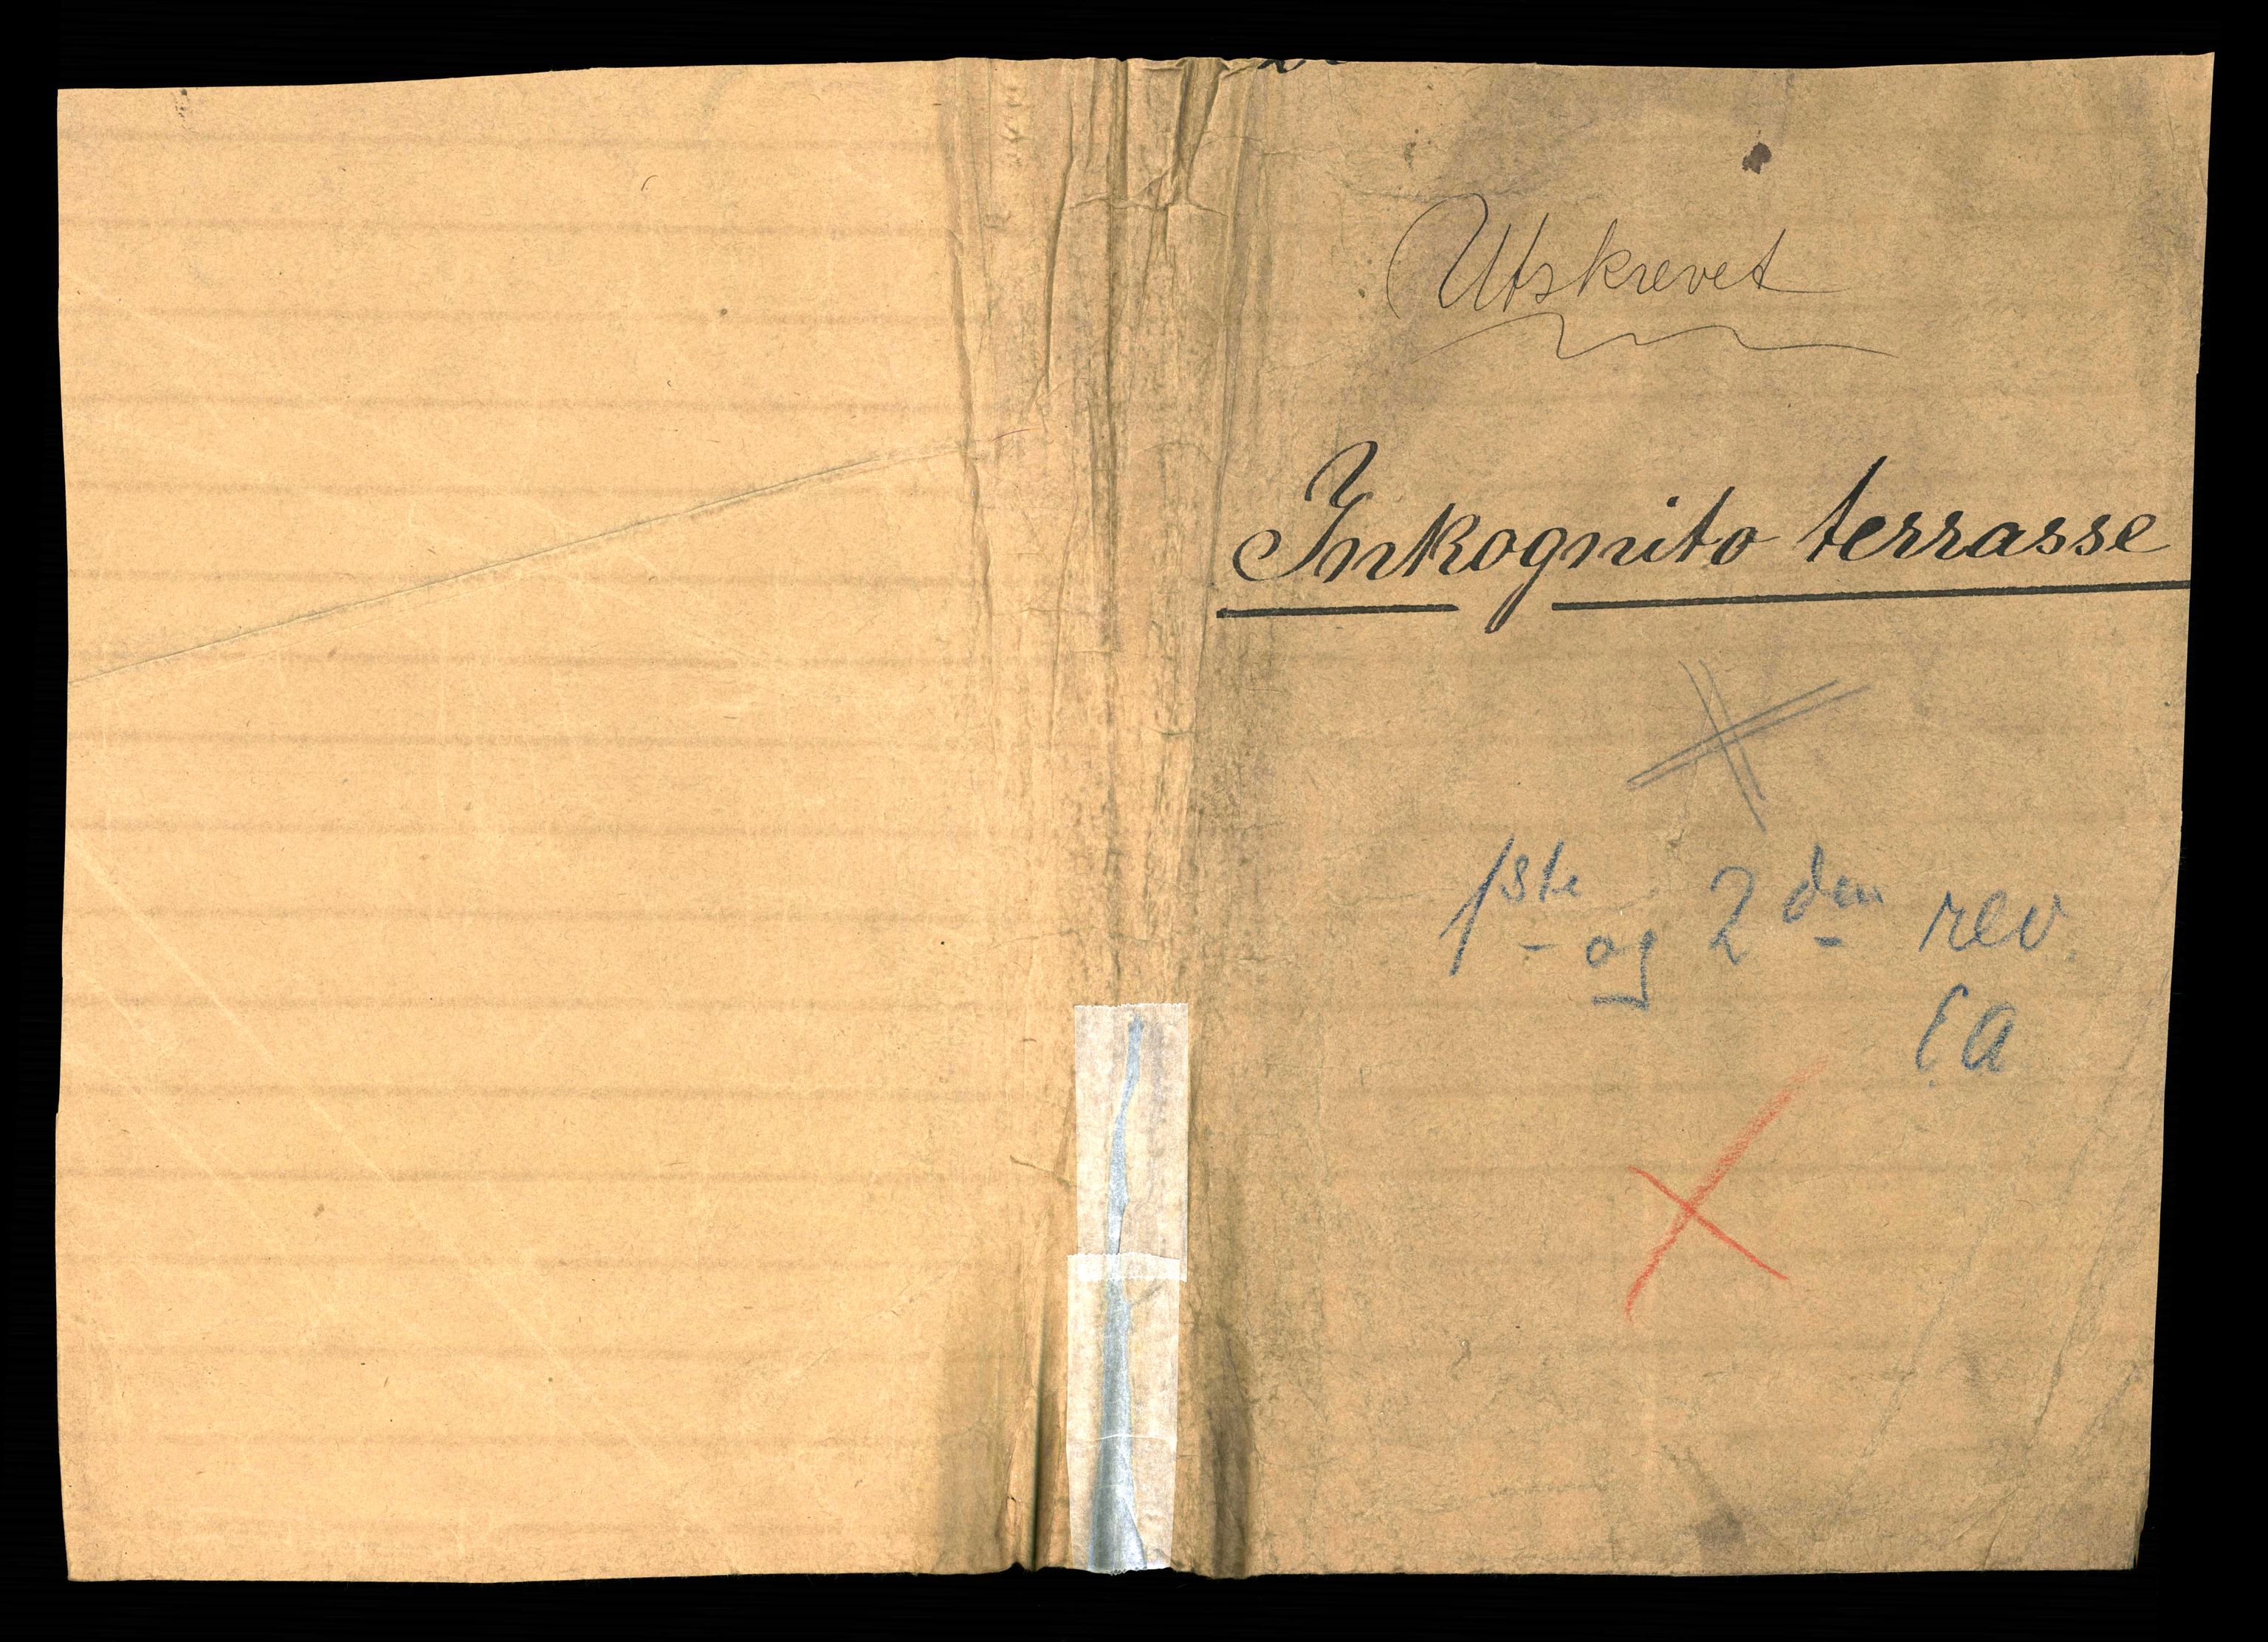 Utskrevet
Inkognito terrasse
1ste og 2den rev.
EA